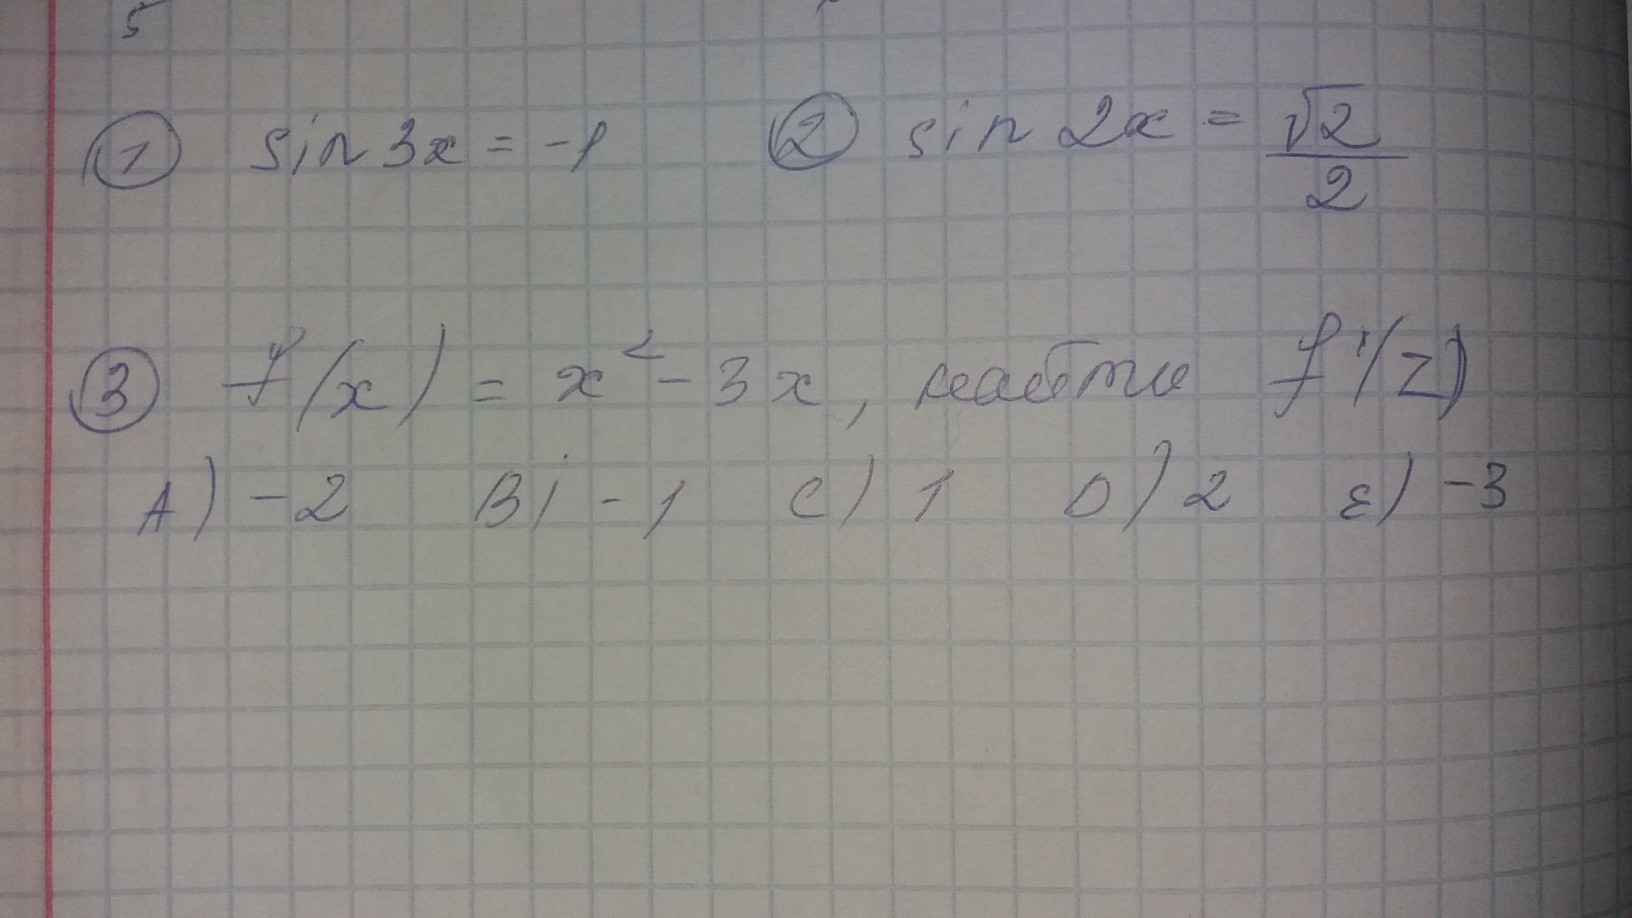 5
① sin 3x = -1 ② sin 2x = √2/2
③ f(x) = x² - 3x, найти f'(2)
A) -2 B) -1 C) 1 D) 2 E) -3